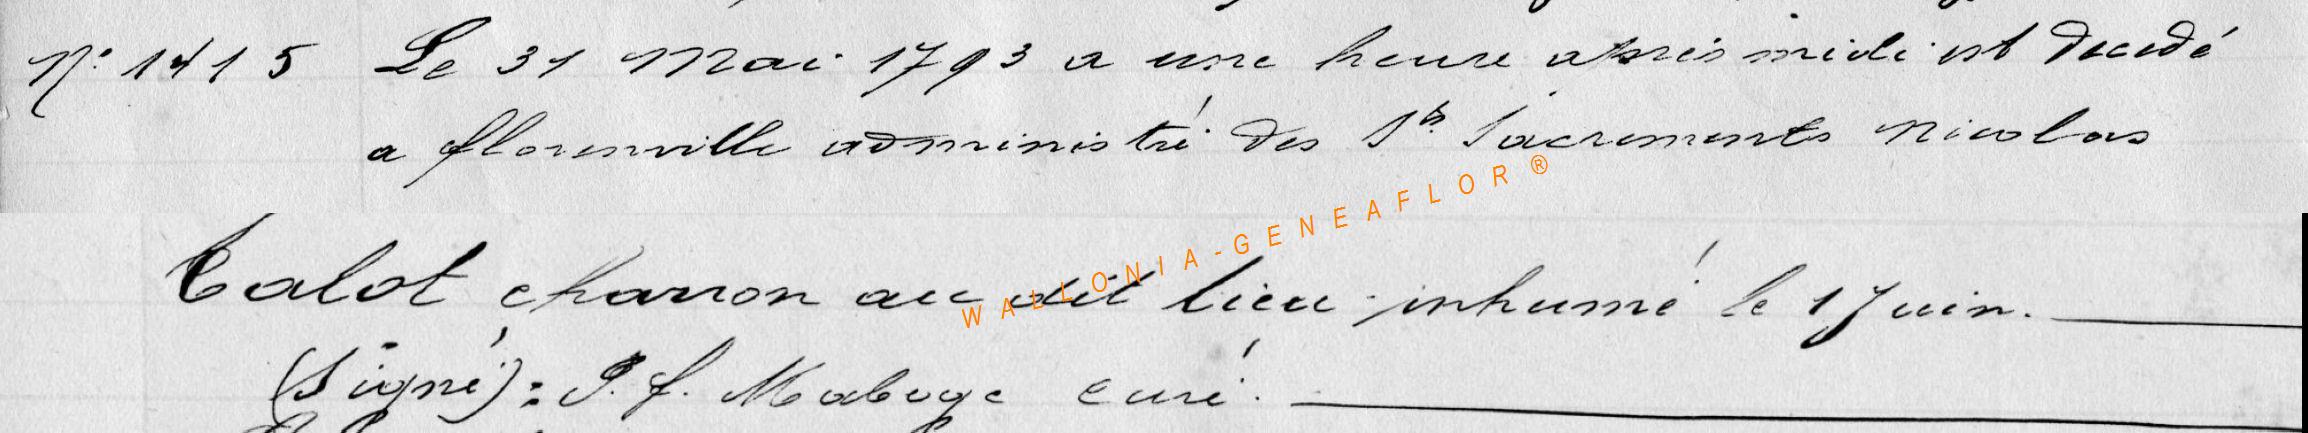 N° 1415 Le 31 Mai 1793 a une heure après midi est décedé
a florenville administré des Sts Sacrements Nicolas
WALLONIA-GENEAFLOR®
Talot charron au dit lieu inhumé le 1 Juin.
(Signé): J. f. Maboge curé.